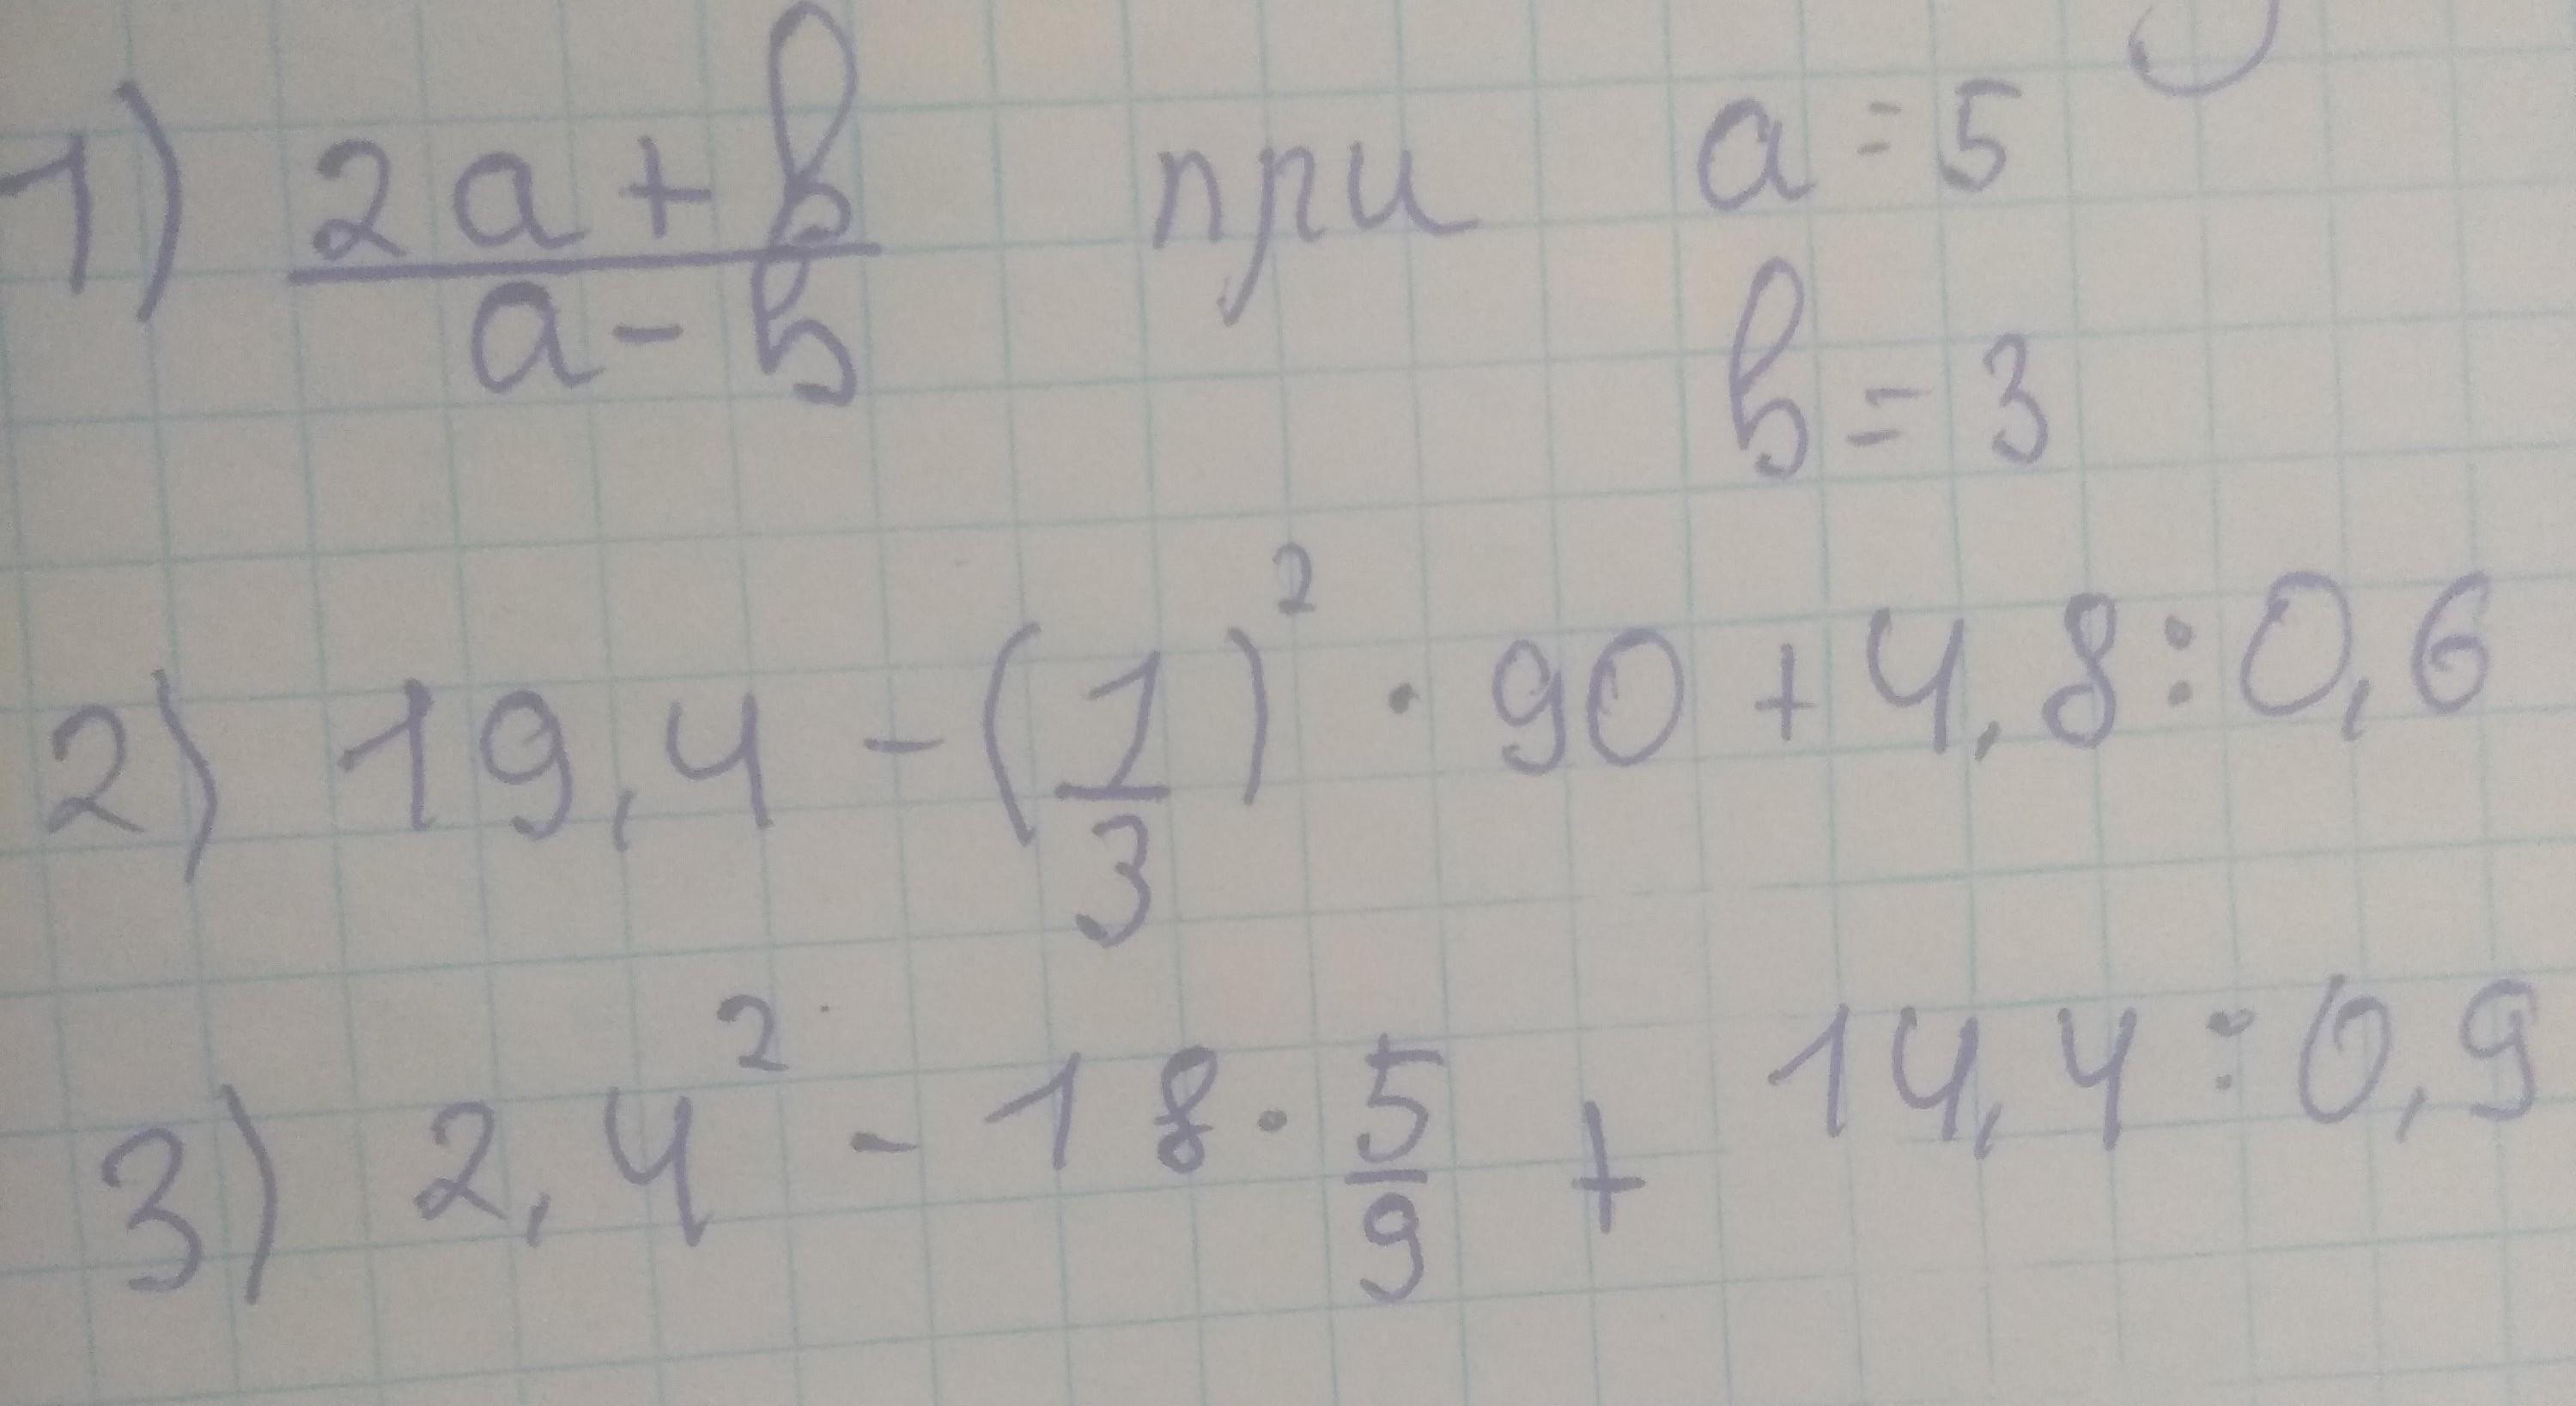 1) (2a + b)/(a - b) при a = 5
b = 3
2) 19,4 - (1/3)² · 90 + 4,8 : 0,6
3) 2,4² - 18 · 5/9 + 14,4 : 0,9